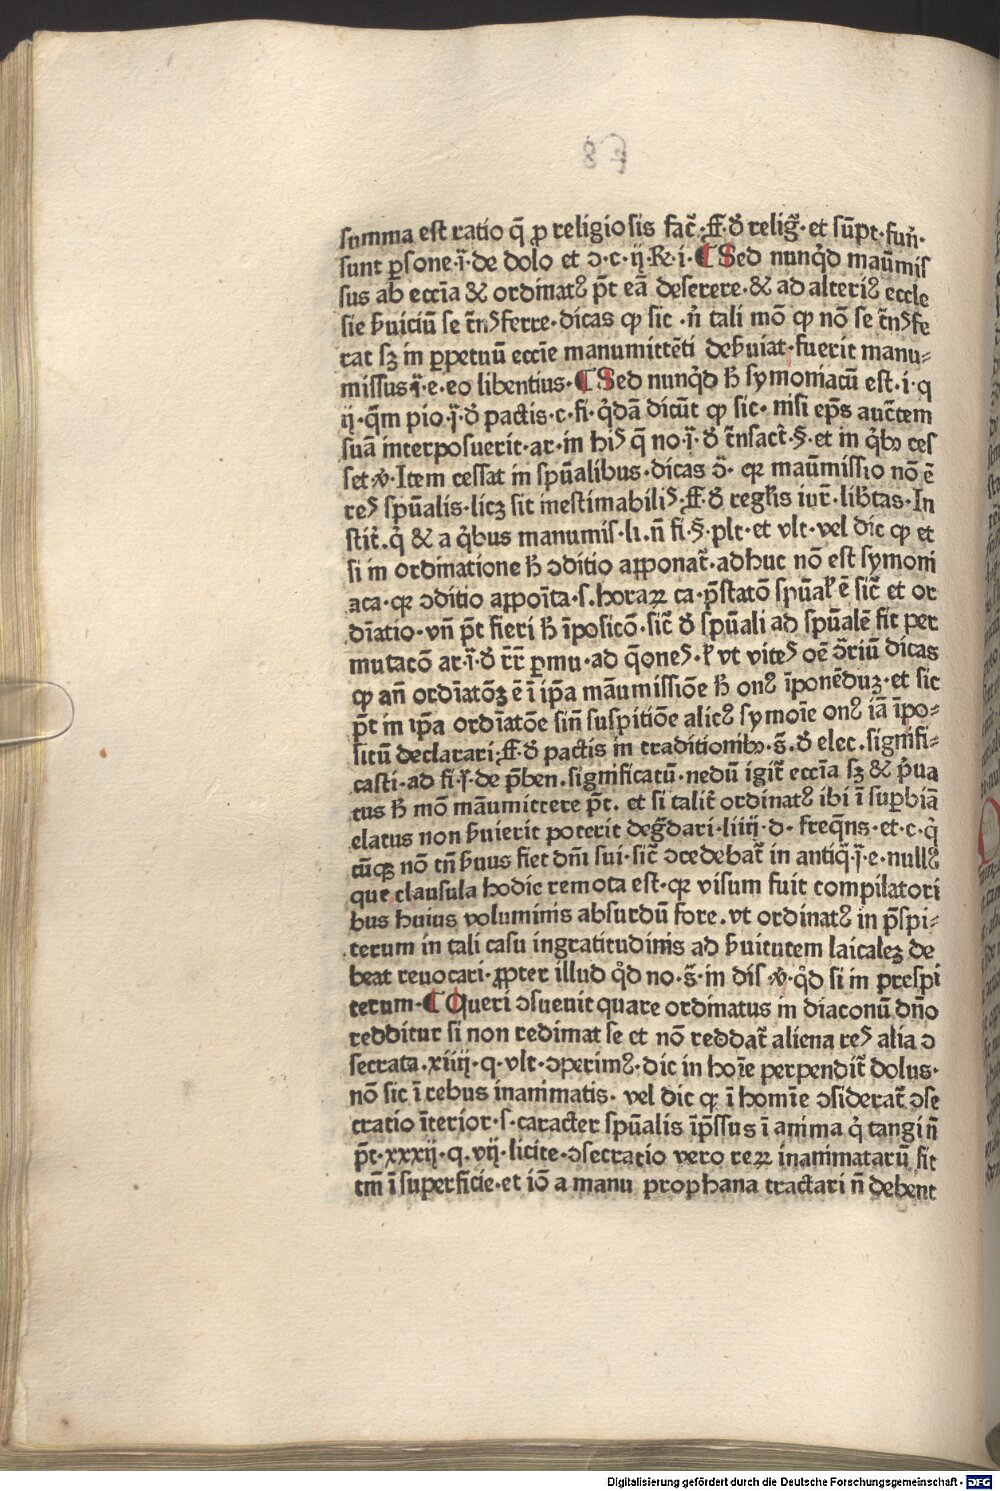 summa est ratio q̄ ꝓ religiosis fac̄t·ff·ꝺ̄ relig̃·et sūpt·fuñ·
sunt ꝑsone·ī·de dolo et ↄ·c·ij·℞·i·¶ Sed nunq̇d maūmiſ
sus ab ecc̄ia & ordinatꝰ p̄t eā deserere·& ad alteriꝰ eccle
sie ẜuiciū se t̄nſferre·dicas ꝙ sic·n̄ tali mō ꝙ nō se t̄nſfe
rat sꝫ in ꝑpetuū ecc̄ie manumittēti deẜuiat·fuerit manu⸗
missus ī·e·eo libentius·¶ Sed nunq̇d ħ symoniacū est·i·q
ij·q̄m pio·ī·ꝺ̄ pactis·c·fi·q̇dā dicūt ꝙ sic·nisi ep̄s auc̄tem
suā interposuerit·ar·in hiſ q̄ no·ī·ꝺ̄ t̄nsact̄·§·et in q̇bꝫ ces
set ꝟ·Item cessat in spūalibus·dicas ↄ̄·qꝛ maūmissio nō ē
reſ spūalis·licꝫ sit inestimabiliſ·ff·ꝺ̄ regl̄is iur̄·lib̄tas·In
stit̄·q̇ & a q̇bus manumiſ·li·n̄ fi·§·plt·et vlt·vel dic ꝙ et
si in ordinatione ħ ↄditio apponat̄·adhuc nō est symoni
aca·qꝛ ↄditio appoīta·s·horaꝝ ca·p̄statō spūal̄ ē sic̄ et or
dīatio·vn̄ p̄t fieri ħ īposicō·sic̄ ꝺ̄ spūali ad spūalē fit per
mutacō ar·ī·ꝺ̄ r̄r̄ ꝑmu·ad q̄oneſ·ł vt viteſ oē ↄ̄riū dicas
ꝙ an̄ ordīatōꝫ ē ī ip̄a māumissiōe ħ onꝰ īponēduꝫ·et sic
p̄t in ip̄a ordīatōe sin̄ suspitiōe alicꝰ symoīe onꝰ iā īpo⸗
sitū declarari·ff·ꝺ̄ pactis in traditionibꝫ·s̄·ꝺ̄ elec·signifi⸗
casti·ad fi·ī·de p̄ben·significatū·nedū igit̄ ecc̄ia sꝫ & p̄ua
tus ħ mō māumittere p̄t·et si talit̄ ordinatꝰ ibi ī suꝑbiā
elatus non ẜuierit poterit deg̃dari·liiij·d·freq̄ns·et·c·q̇
cūqꝫ nō tn̄ ẜuus fiet dn̄i sui·sic̄ ↄcedebat̄ in antiq̄·ī·e·nullꝰ
que clausula hodie remota est·qꝛ visum fuit compilatori
bus huius voluminis absurdū fore·vt ordinatꝰ in p̄spi⸗
terum in tali casu ingratitudinis ad ẜuitutem laicaleꝫ de
beat reuocari·ꝓpter illud q̇d no·s̄·in diſ ꝟ·q̇d si in prespi
terum·¶ Queri ↄsueuit quare ordinatus in diaconū dn̄o
redditur si non redimat se et nō reddat̄ aliena reſ alia ↄ
secrata·xiiij·q·vlt·ↄperimꝰ·dic in hoīe perpendit̄ dolus·
nō sic ī rebus inanimatis·vel dic ꝙ ī homīe ↄsiderat̄ ↄse
cratio īterior·s·caracter spūalis īp̄ssus ī anima q̇ tangi n̄
p̄t·xxxij·q·vij·licite·ↄsecratio vero reꝝ inanimatarū fit
tm̄ ī superficie·et iō a manu prophana tractari n̄ debent
Digitalisierung gefördert durch die Deutsche Forschungsgemeinschaft · DFG